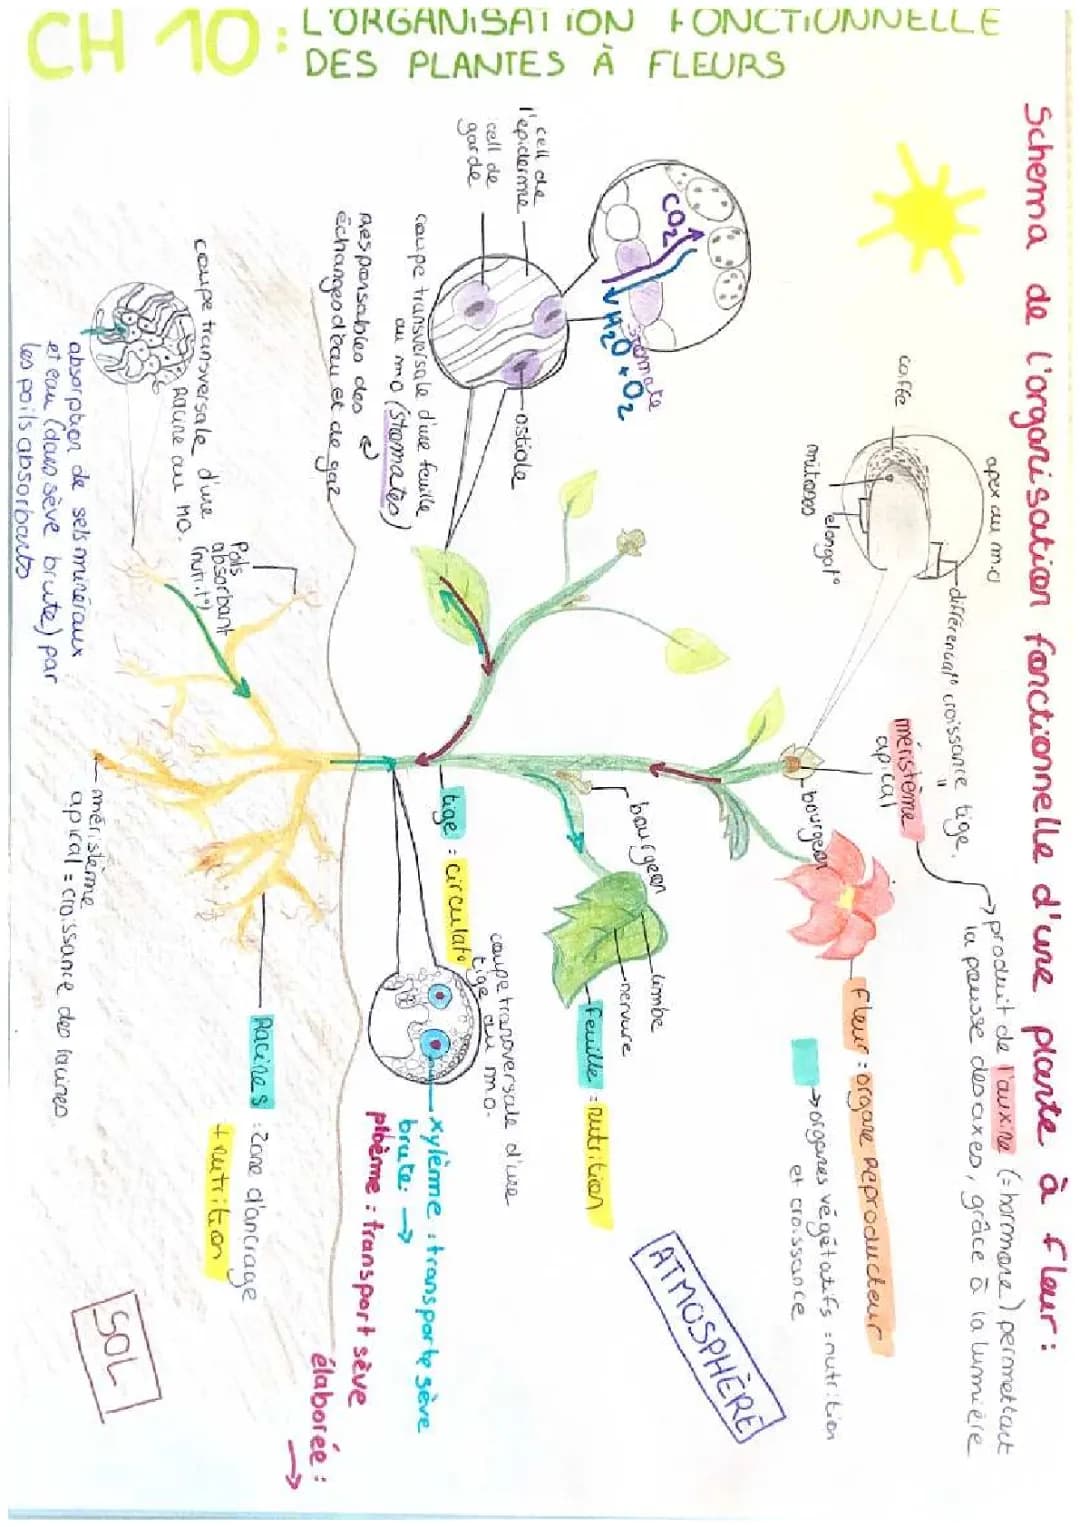 CH 10 : L'ORGANISATION FONCTIONNELLE
DES PLANTES À FLEURS
Schema de l'organisation fonctionnelle d'une plante à fleur :
apex au m.o
coiffe
mitoses
elongat°
différenciat° croissance tige.
méristème
apical
→ produit de l'auxine (= hormone) permettant
la pousse des axes, grâce à la lumière
bourgeon
Fleur : organe reproducteur
→ organes végétatifs = nutrition
et croissance
ATMOSPHÈRE
CO2
H2O + O2
stomate
cell de
l'epiderme
cell de
garde
ostiole
coupe transversale d'une feuille
au mo (stomates)
Responsables des
échanges d'eau et de gaz
bourgeon
limbe
nervure
feuille = nutrition
tige : circulat°
coupe transversale d'une
tige au m.o.
xylème : transporte sève
brute : →
phloème : transport sève
élaborée :
→
coupe transversale d'une
Racine au MO.
Poils
absorbant
(nutrit°)
absorption de sels minéraux
et eau (dans sève brute) par
les poils absorbants
méristème
apical = croissance des racines
Racines : zone d'ancrage
+ nutrition
SOL